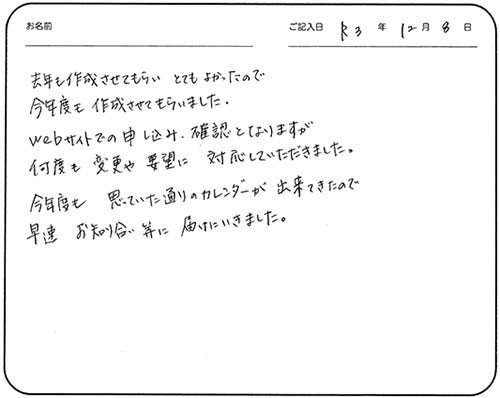 お名前 ご記入日 R3 年 12 月 8 日
去年も作成させてもらい とてもよかったので
今年度も 作成させてもらいました.
webサイトでの申し込み、確認となりますが
何度も 変更や 要望に 対応していただきました。
今年度も 思っていた通りのカレンダーが 出来てきたので
早速 お知り合い 等に 届けにいきました。